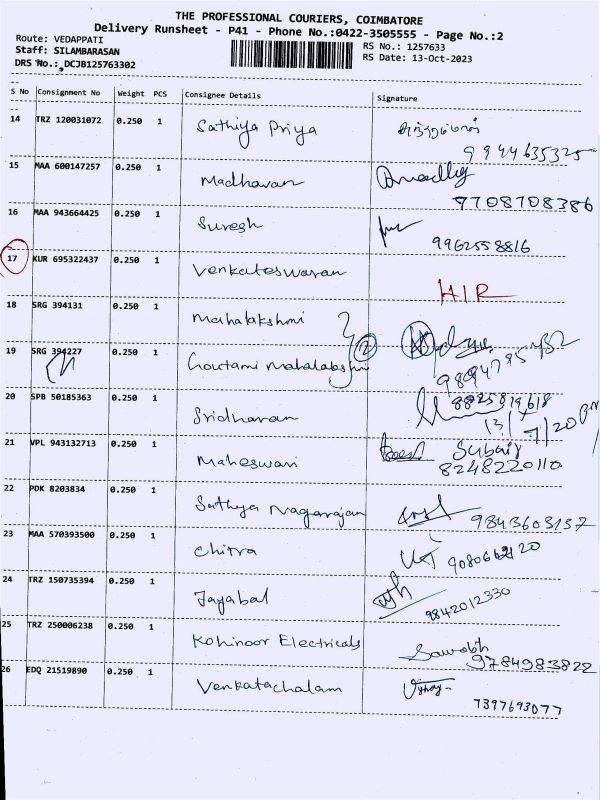 THE PROFESSIONAL COURIERS, COIMBATORE
Delivery Runsheet - P41 - Phone No.:0422-3505555 - Page No.:2
Route: VEDAPPATI
Staff: SILAMBARASAN
DRS No.: DCJB125763302
RS No.: 1257633
RS Date: 13-Oct-2023
S No Consignment No Weight PCS Consignee Details Signature
14 TRZ 120031072 0.250 1 Sathiya Priya
9944635325
15 MAA 600147257 0.250 1 Madhavan
9708708386
16 MAA 943664425 0.250 1 Suresh
9962558816
17 KUR 695322437 0.250 1 Venkateswaran
HIR
18 SRG 394131 0.250 1 Mahalakshmi
19 SRG 394227 0.250 1 Goutami Mahalakshmi 2
20 SPB 50185363 0.250 1 Sridharan 8825819618
21 VPL 943132713 0.250 1 Maheswari Subair
8248220110
22 PDK 8203834 0.250 1 Sathya Nagarajan
9843603137
23 MAA 570393500 0.250 1 Chitra
24 TRZ 150735394 0.250 1 Jayabal
9842012330
25 TRZ 250006238 0.250 1 Kohinoor Electricals Saurabh
9784983822
26 EDQ 21519890 0.250 1 Venkatachalam Vijay
7397693077